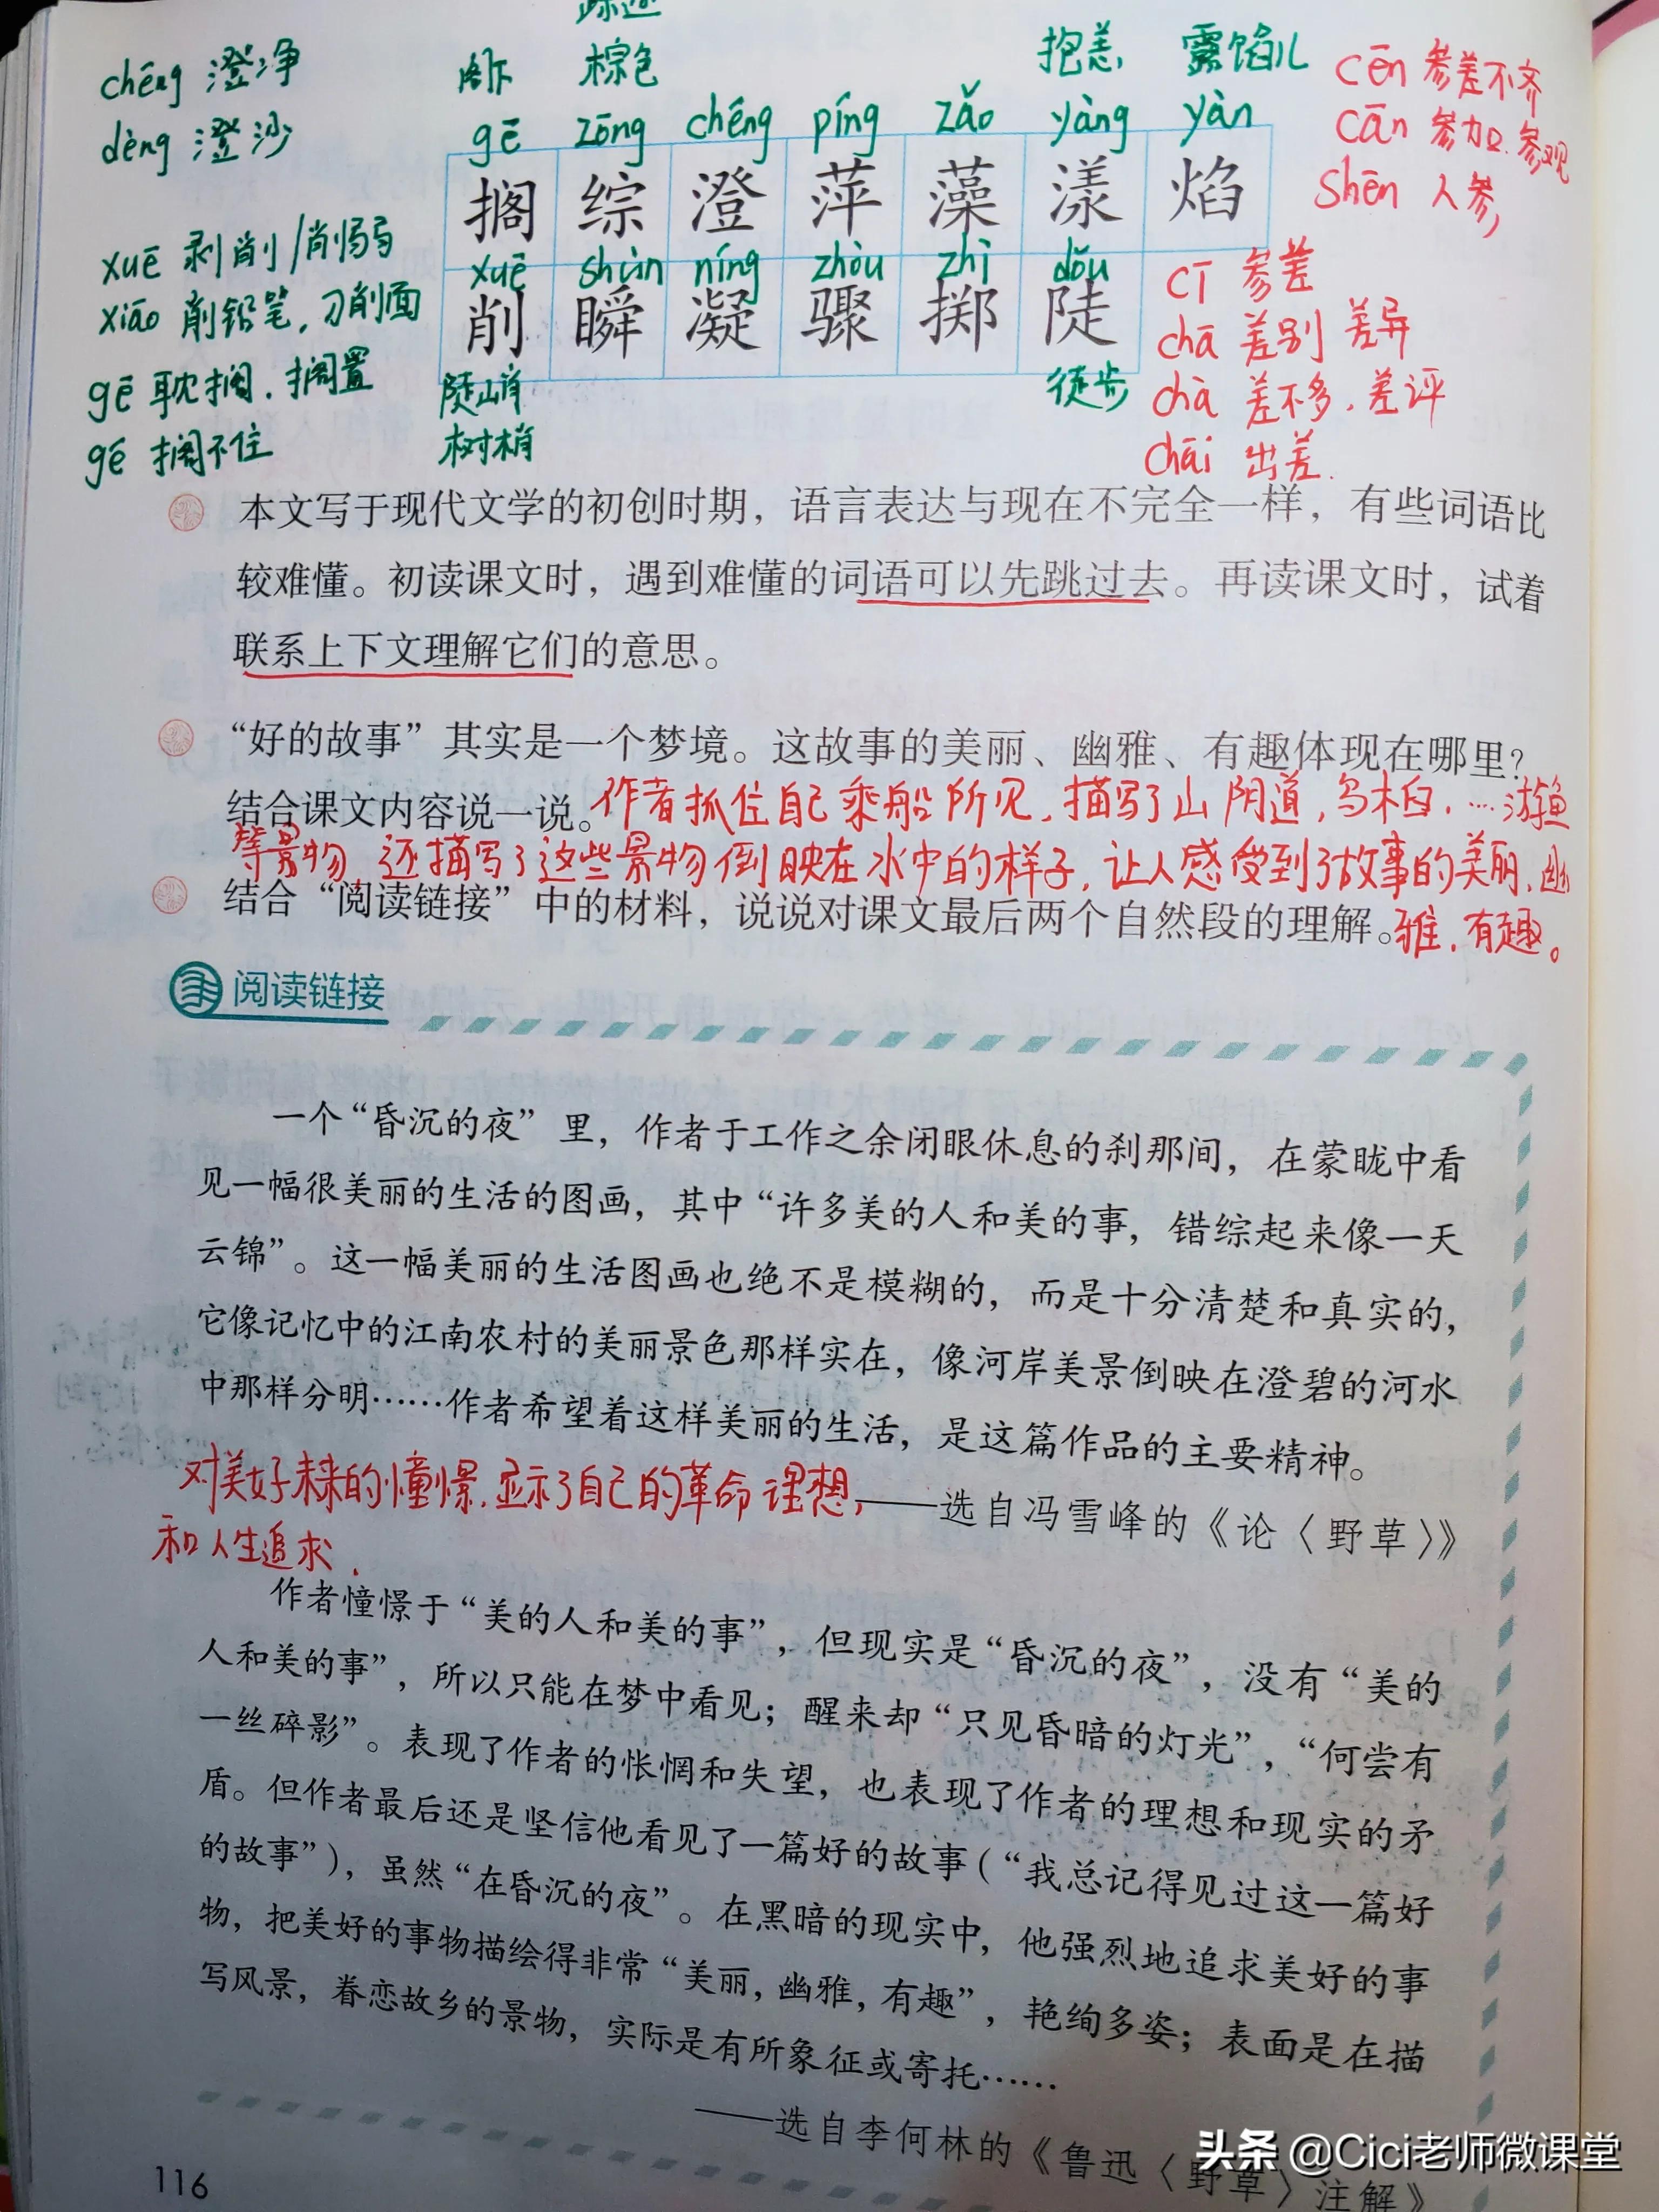 chéng 澄净
dèng 澄沙
卧 棕色
抱恙 露馅儿
gē zōng chéng píng zǎo yàng yàn
搁 综 澄 萍 藻 漾 焰
xuē shùn níng zhòu zhì dǒu
削 瞬 凝 骤 掷 陡
xuē 剥削/削弱
xiāo 削铅笔,刀削面
gē 耽搁.搁置
gé 搁不住
陡峭
树梢
徒步
cēn 参差不齐
cān 参加.参观
shēn 人参
cī 参差
chā 差别 差异
chà 差不多.差评
chāi 出差.
本文写于现代文学的初创时期，语言表达与现在不完全一样，有些词语比
较难懂。初读课文时，遇到难懂的词语可以先跳过去。再读课文时，试着
联系上下文理解它们的意思。
“好的故事”其实是一个梦境。这故事的美丽、幽雅、有趣体现在哪里？
结合课文内容说一说。作者抓住自己乘船所见,描写了山阴道,乌桕,…游鱼
等景物,还描写了这些景物倒映在水中的样子,让人感受到了故事的美丽、幽
结合“阅读链接”中的材料，说说对课文最后两个自然段的理解。雅.有趣。
阅读链接
一个“昏沉的夜”里，作者于工作之余闭眼休息的刹那间，在蒙眬中看
见一幅很美丽的生活的图画，其中“许多美的人和美的事，错综起来像一天
云锦”。这一幅美丽的生活图画也绝不是模糊的，而是十分清楚和真实的，
它像记忆中的江南农村的美丽景色那样实在，像河岸美景倒映在澄碧的河水
中那样分明……作者希望着这样美丽的生活，是这篇作品的主要精神。
对美好未来的憧憬.显示了自己的革命理想,——选自冯雪峰的《论〈野草〉》
和人生追求.
作者憧憬于“美的人和美的事”，但现实是“昏沉的夜”，没有“美的
人和美的事”，所以只能在梦中看见；醒来却“只见昏暗的灯光”，“何尝有
一丝碎影”。表现了作者的怅惘和失望，也表现了作者的理想和现实的矛
盾。但作者最后还是坚信他看见了一篇好的故事（“我总记得见过这一篇好
的故事”），虽然“在昏沉的夜”。在黑暗的现实中，他强烈地追求美好的事
物，把美好的事物描绘得非常“美丽，幽雅，有趣”，艳绚多姿；表面是在描
写风景，眷恋故乡的景物，实际是有所象征或寄托……
——选自李何林的《鲁迅〈野草〉注解》
116
头条 @Cici老师微课堂